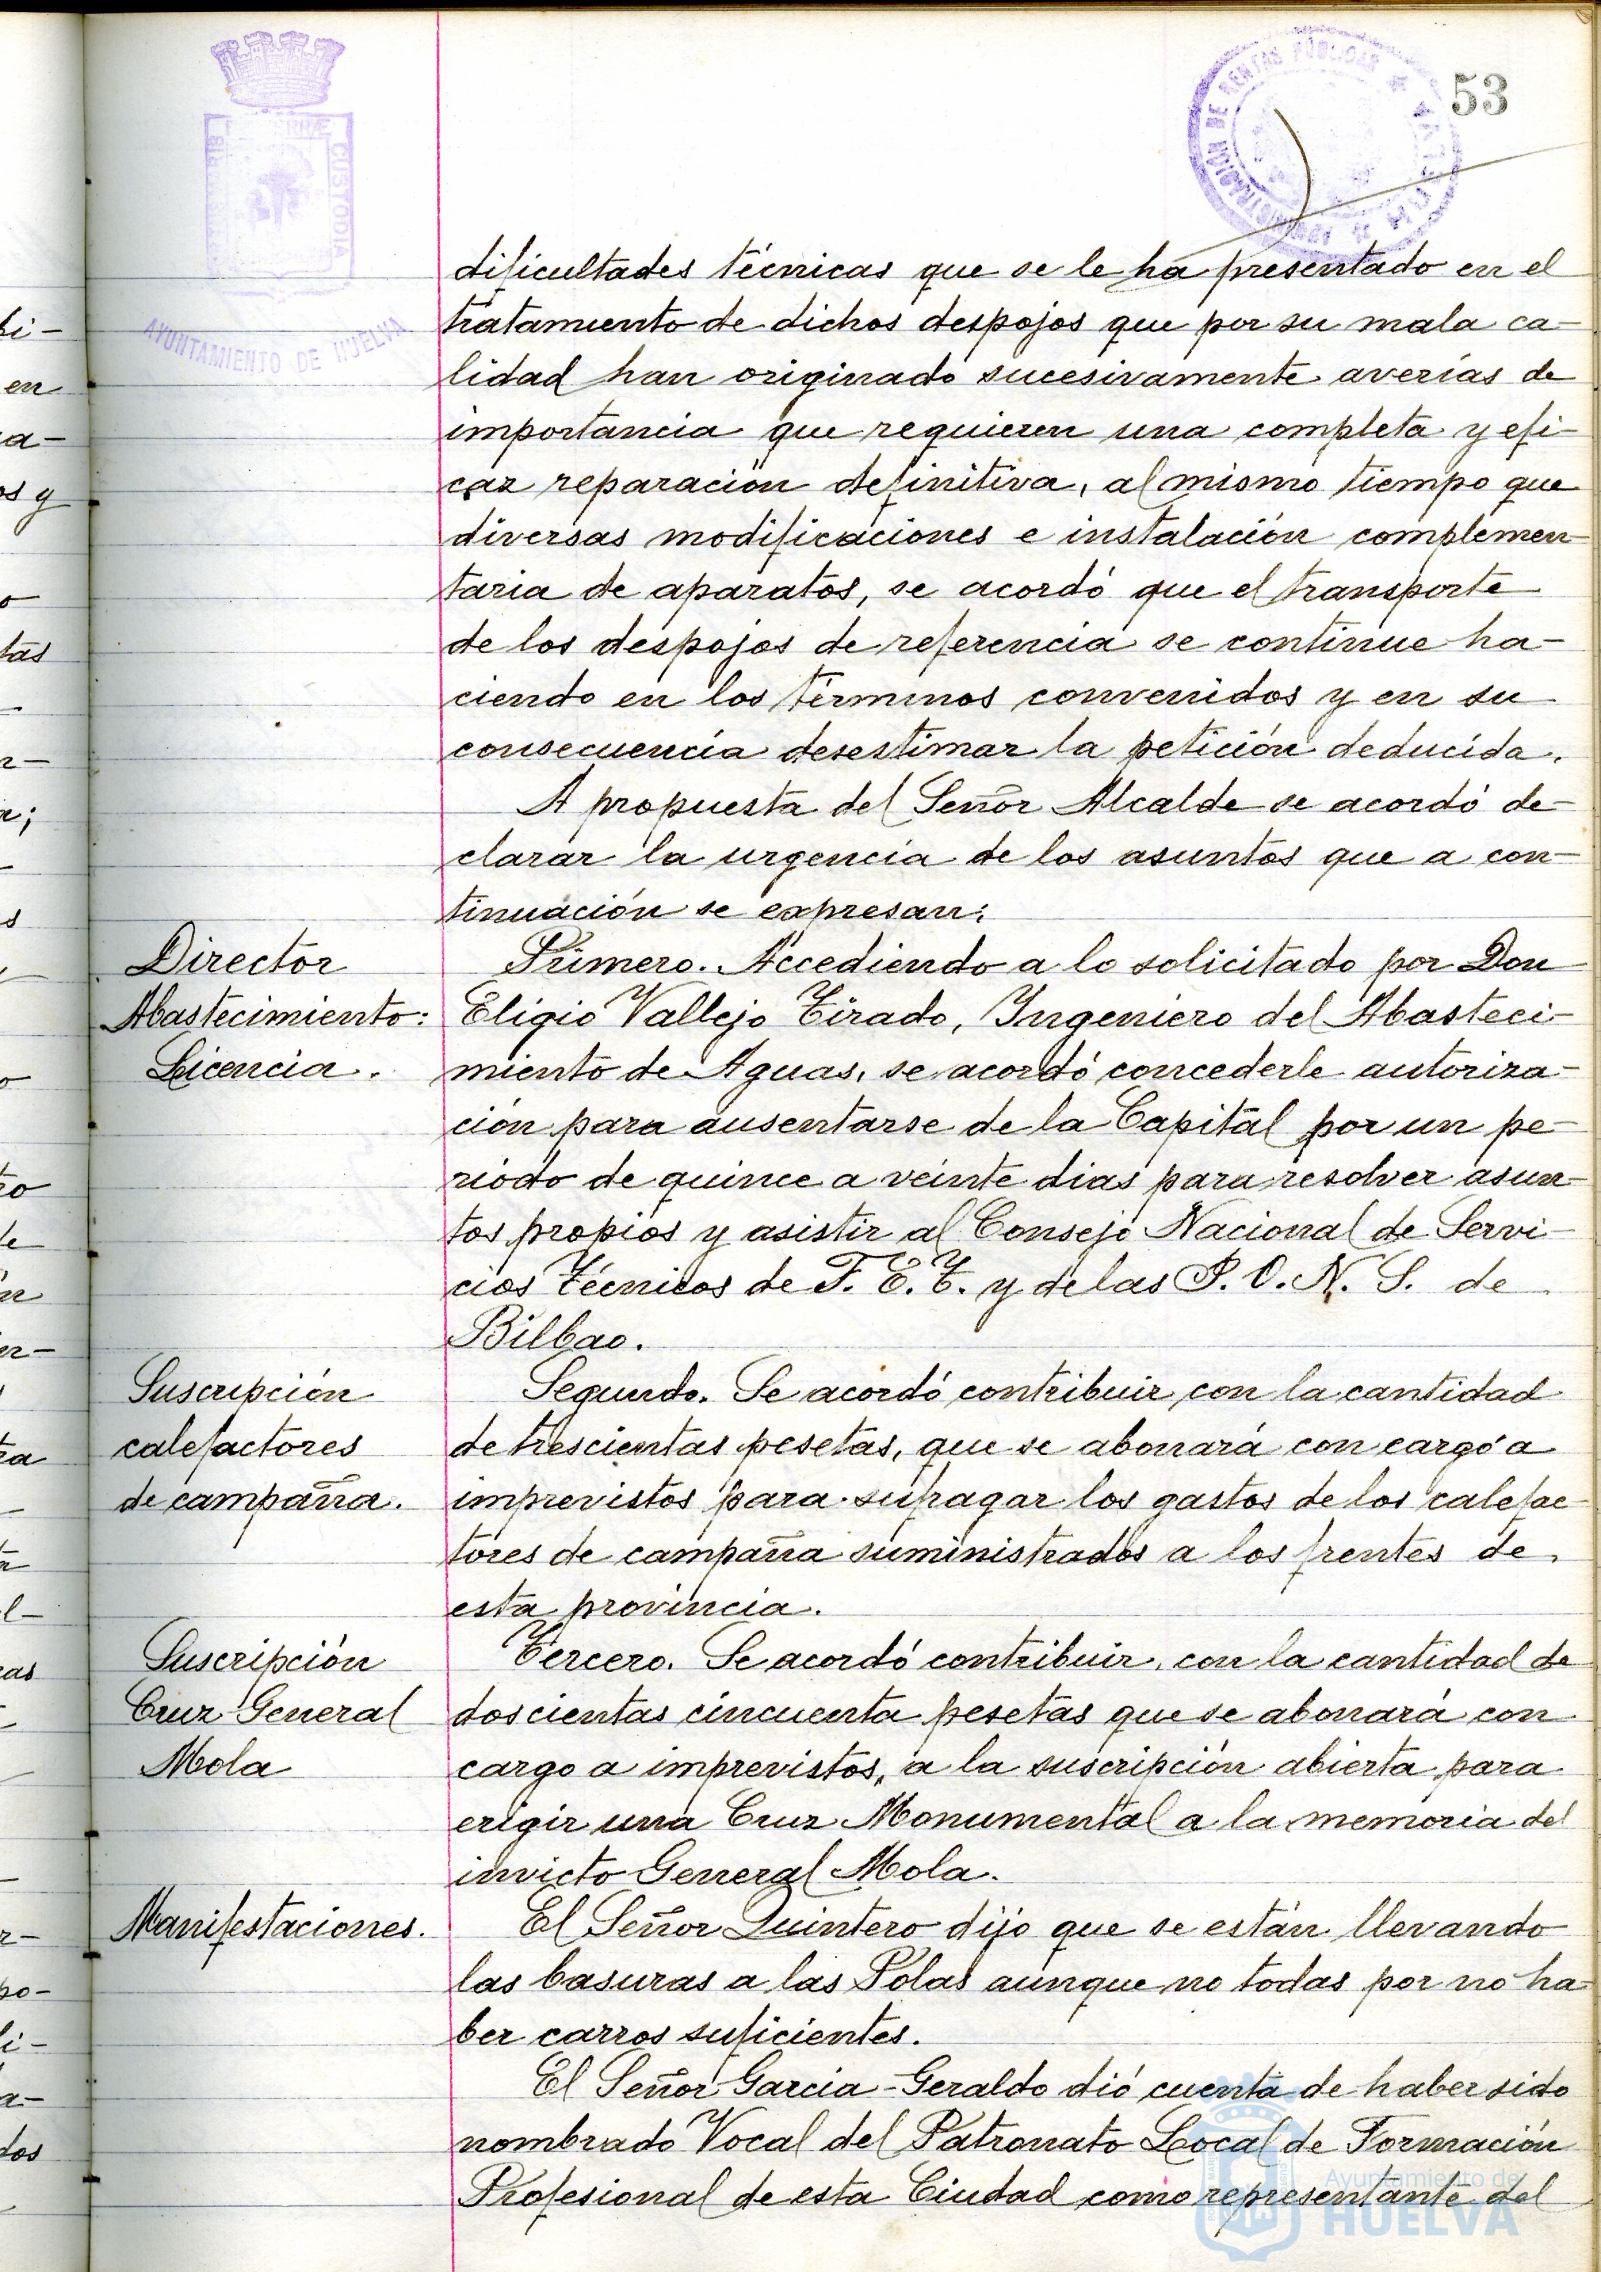 53
PORTUS MARIS ET TERRAE CUSTODIA
AYUNTAMIENTO DE HUELVA
ADMINISTRACIÓN DE RENTAS PÚBLICAS * HUELVA *
dificultades técnicas que se le ha presentado en el
tratamiento de dichos despojos que por su mala ca-
lidad han originado sucesivamente averías de
importancia que requieren una completa y efi-
caz reparación definitiva, al mismo tiempo que
diversas modificaciones e instalación complemen-
taria de aparatos, se acordó que el transporte
de los despojos de referencia se continue ha-
ciendo en los términos convenidos y en su
consecuencia desestimar la petición deducida.
A propuesta del Señor Alcalde se acordó de-
clarar la urgencia de los asuntos que a con-
tinuación se expresan:
Director
Abastecimiento:
Licencia.
Primero. Accediendo a lo solicitado por Don
Eligio Vallejo Tirado, Ingeniero del Abasteci-
miento de Aguas, se acordó concederle autoriza-
ción para ausentarse de la Capital por un pe-
riodo de quince a veinte dias para resolver asun-
tos propios y asistir al Consejo Nacional de Servi-
cios Técnicos de F. E. T. y de las J. O. N. S. de
Bilbao.
Suscripción
calefactores
de campaña.
Segundo. Se acordó contribuir con la cantidad
de trescientas pesetas, que se abonará con cargo a
imprevistos para sufragar los gastos de los calefac-
tores de campaña suministrados a los frentes de
esta provincia.
Suscripción
Cruz General
Mola
Tercero. Se acordó contribuir con la cantidad de
doscientas cincuenta pesetas que se abonará con
cargo a imprevistos, a la suscripción abierta para
erigir una Cruz Monumental a la memoria del
invicto General Mola.
Manifestaciones.
El Señor Quintero dijo que se están llevando
las basuras a las Polas aunque no todas por no ha-
ber carros suficientes.
El Señor Garcia-Geraldo dió cuenta de haber sido
nombrado Vocal del Patronato Local de Formación
Profesional de esta Ciudad como representante del
Ayuntamiento de
HUELVA